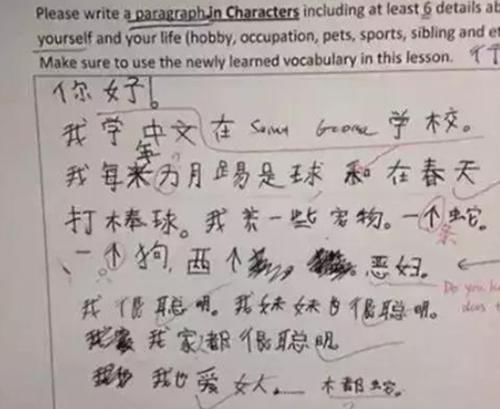 Please write a paragraph in Characters including at least 6 details ab
yourself and your life (hobby, occupation, pets, sports, sibling and et
Make sure to use the newly learned vocabulary in this lesson.
你好!
我学中文在 George 学校。
我每来为月踢是球和在春天
年
打棒球。我养一些宠物。一个蛇。
条
一个狗,西个 恶妇。
Do you k
does
我很聪明。我妹妹也很聪明。
我家都很聪明
我也爱女人。